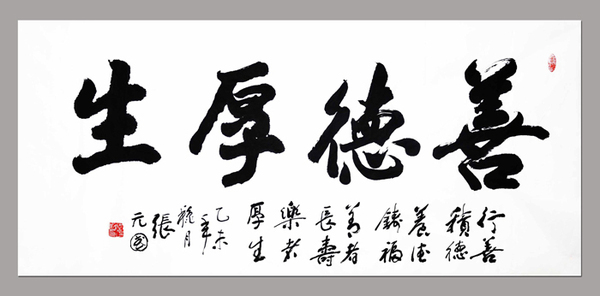 善德厚生
行善
積德
養德
鑄福
善者
長壽
樂者
厚生
乙未
年
龍月
張
元